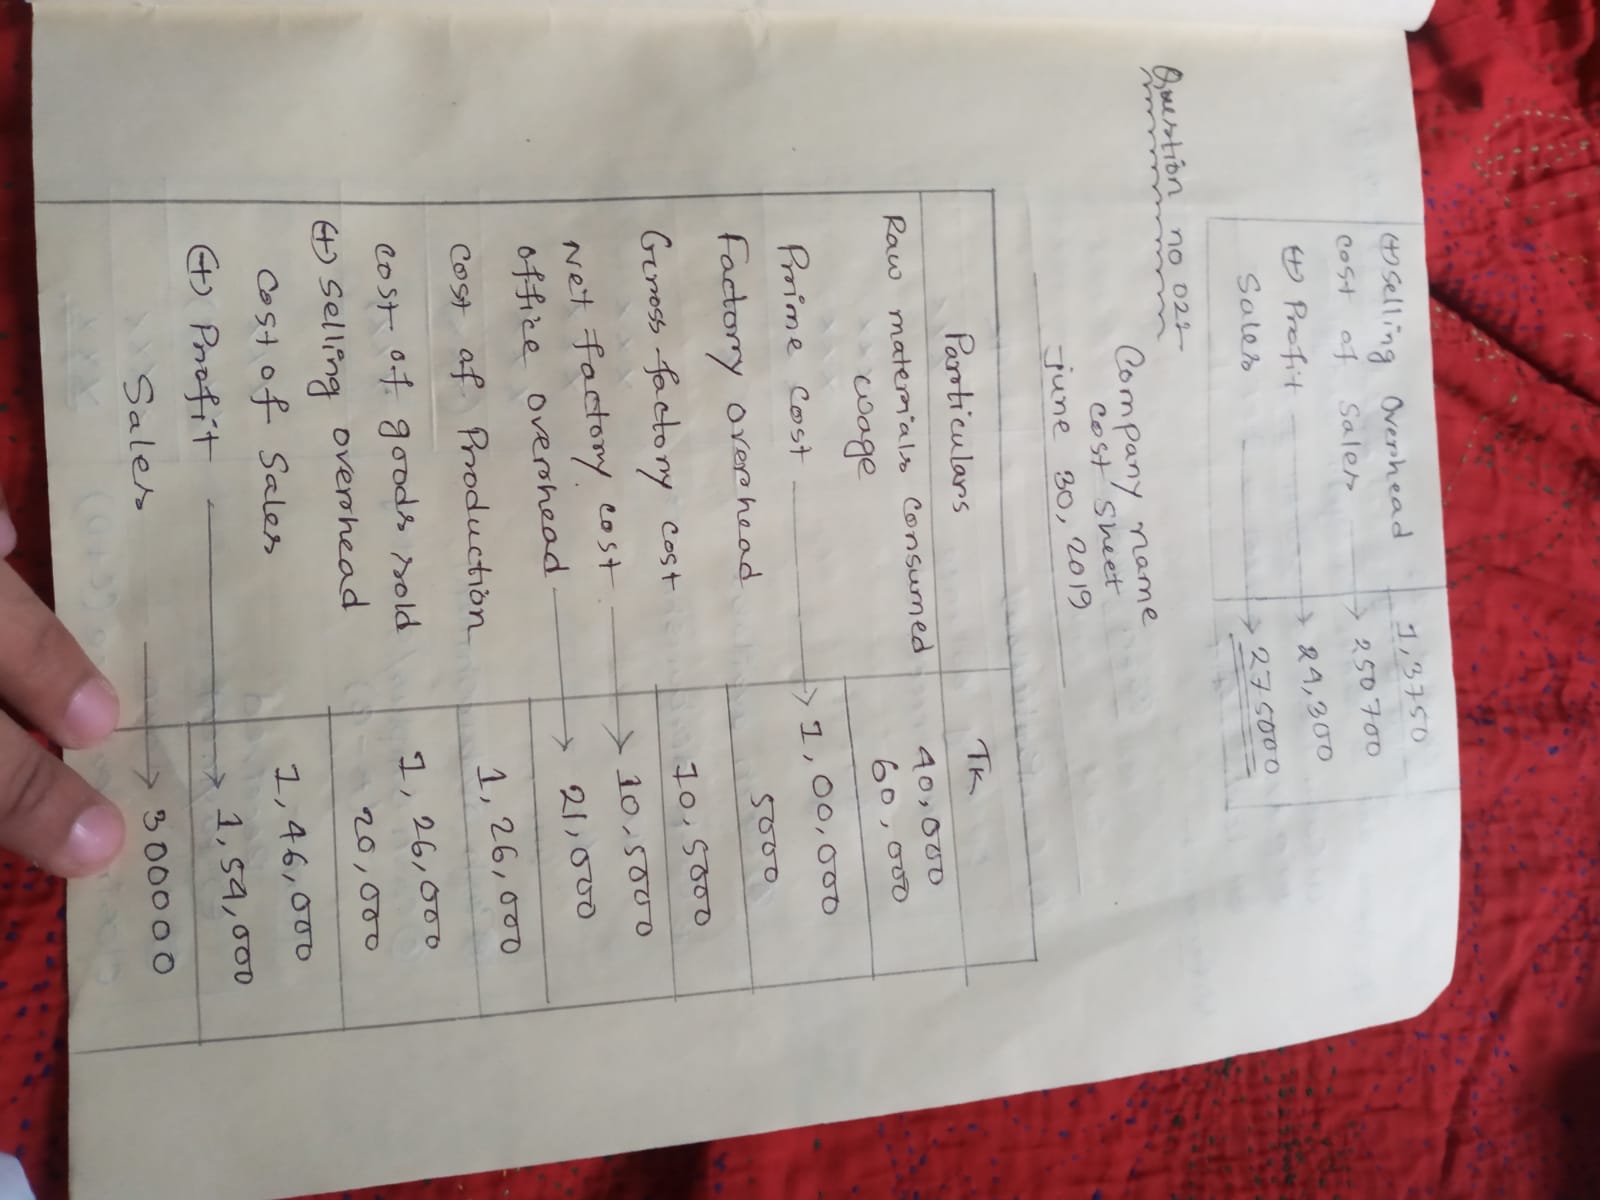 (+) Selling Overhead 1,3750
cost of Sales 250700
(+) Profit 24,300
Sales 275000
Question no 02
Company name
cost sheet
june 30, 2019
Particulars Tk
Raw materials consumed 40,000
wage 60,000
Prime cost 1,00,000
Factory overhead 5000
Gross factory cost 10,5000
Net factory cost 10,5000
office overhead 21,000
cost of Production 1,26,000
cost of goods sold 1,26,000
(+) selling overhead 20,000
Cost of Sales 1,46,000
(+) Profit 1,54,000
Sales 300000